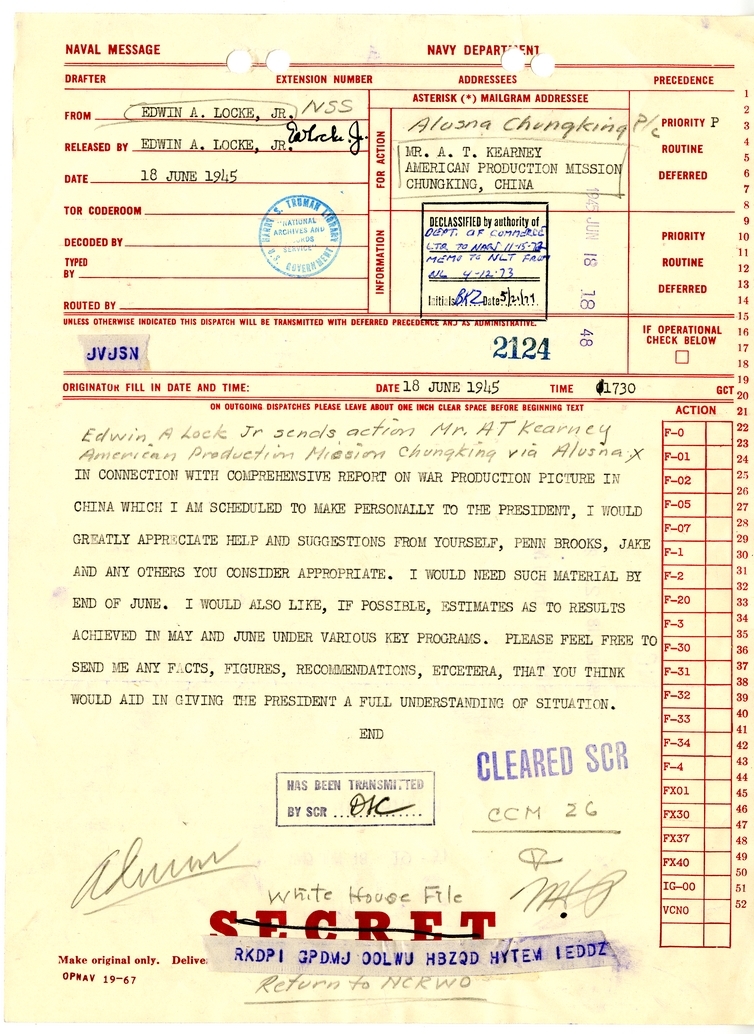 NAVAL MESSAGE NAVY DEPARTMENT
DRAFTER EXTENSION NUMBER ADDRESSEES PRECEDENCE
FROM EDWIN A. LOCKE, JR. NSS
RELEASED BY EDWIN A. LOCKE, JR. EALocke Jr.
DATE 18 JUNE 1945
TOR CODEROOM
DECODED BY
TYPED
BY
ROUTED BY
HARRY S. TRUMAN LIBRARY
"NATIONAL
ARCHIVES AND
RECORDS
SERVICE"
U.S. GOVERNMENT
ASTERISK (*) MAILGRAM ADDRESSEE
FOR ACTION
Alusna Chungking P/c
MR. A. T. KEARNEY
AMERICAN PRODUCTION MISSION
CHUNGKING, CHINA
PRIORITY P
ROUTINE
DEFERRED
INFORMATION
DECLASSIFIED by authority of
DEPT. OF COMMERCE
LTR TO NARS 11-15-72
MEMO TO NLT FROM
NL 4-12-73
Initials BKZ Date 5/21/71
1945 JUN 18 18 48
PRIORITY
ROUTINE
DEFERRED
UNLESS OTHERWISE INDICATED THIS DISPATCH WILL BE TRANSMITTED WITH DEFERRED PRECEDENCE AND AS ADMINISTRATIVE.
JVJSN
2124
IF OPERATIONAL
CHECK BELOW
ORIGINATOR FILL IN DATE AND TIME: DATE 18 JUNE 1945 TIME 1730 GCT
ON OUTGOING DISPATCHES PLEASE LEAVE ABOUT ONE INCH CLEAR SPACE BEFORE BEGINNING TEXT
Edwin A Lock Jr sends action Mr. AT Kearney
American Production Mission Chungking via Alusna X
IN CONNECTION WITH COMPREHENSIVE REPORT ON WAR PRODUCTION PICTURE IN
CHINA WHICH I AM SCHEDULED TO MAKE PERSONALLY TO THE PRESIDENT, I WOULD
GREATLY APPRECIATE HELP AND SUGGESTIONS FROM YOURSELF, PENN BROOKS, JAKE
AND ANY OTHERS YOU CONSIDER APPROPRIATE. I WOULD NEED SUCH MATERIAL BY
END OF JUNE. I WOULD ALSO LIKE, IF POSSIBLE, ESTIMATES AS TO RESULTS
ACHIEVED IN MAY AND JUNE UNDER VARIOUS KEY PROGRAMS. PLEASE FEEL FREE TO
SEND ME ANY FACTS, FIGURES, RECOMMENDATIONS, ETCETERA, THAT YOU THINK
WOULD AID IN GIVING THE PRESIDENT A FULL UNDERSTANDING OF SITUATION.
END
CLEARED SCR
HAS BEEN TRANSMITTED
BY SCR
CCM 26
White House File
SECRET
Make original only. Deliver
RKDPI GPDMJ OOLWU HBZQD HYTEM IEDDZ
OPNAV 19-67
Return to NCRWO
ACTION
F-0
F-01
F-02
F-05
F-07
F-1
F-2
F-20
F-3
F-30
F-31
F-32
F-33
F-34
F-4
FX01
FX30
FX37
FX40
IG-00
VCNO
1
2
3
4
5
6
7
8
9
10
11
12
13
14
15
16
17
18
19
20
21
22
23
24
25
26
27
28
29
30
31
32
33
34
35
36
37
38
39
40
41
42
43
44
45
46
47
48
49
50
51
52